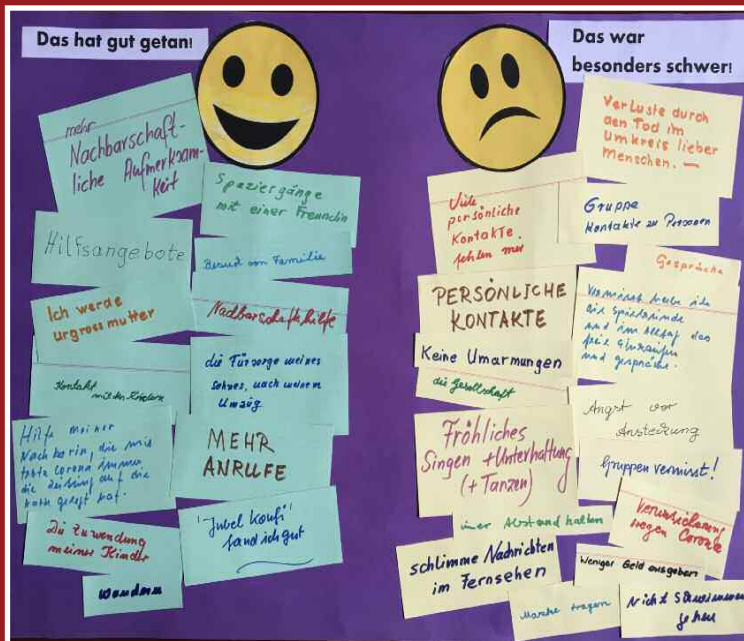 Das hat gut getan!
mehr
Nachbarschaft-
liche Aufmerksam-
keit
Spaziergänge
mit einer Freundin
Hilfsangebote
Besuch von Familie
Ich werde
urgrossmutter
Nachbarschaftshilfe
Kontakt
mit den Kindern
die Fürsorge meines
Sohnes, nach meinem
Umzug
Hilfe meiner
Nachbarin, die mir
trotz Corona immer
die Zeitung auf die
gelegt hat.
MEHR
ANRUFE
Die Zuwendung
meiner Kinder
"Jubel Konfi"
fand ich gut
wandern
Das war
besonders schwer!
Verluste durch
den Tod im
Umkreis lieber
Menschen. —
Viele
persönliche
Kontakte.
fehlen mir
Gruppe
Kontakte zu Personen
Gespräche
PERSÖNLICHE
KONTAKTE
Vermisst habe ich
die Spielrunde
und im Alltag das
freie Einkaufen
und gespräche.
Keine Umarmungen
die Gesellschaft
Angst vor
Ansteckung
Fröhliches
Singen + Unterhaltung
(+ Tanzen)
Gruppen vermisst!
imer Abstand halten
Verunsicherung
wegen Corona
schlimme Nachrichten
im Fernsehen
Weniger Geld ausgeben
Maske tragen
Nicht Schwimmen
gehen